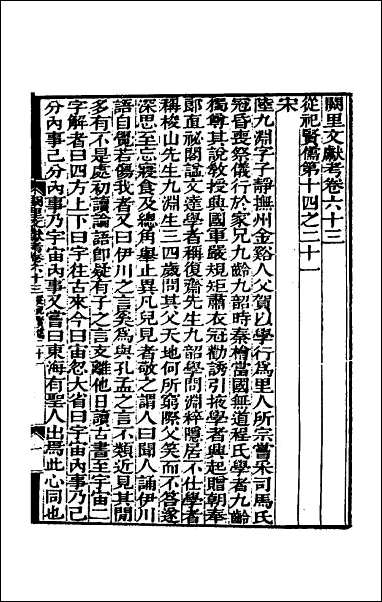 闕里文獻考卷六十三
從祀賢儒第十四之二十一
宋
陸九淵字子靜撫州金谿人父賀以學行爲里人所宗嘗采司馬氏
冠昏喪祭儀行於家兄九齡九韶時秦檜當國無道程氏學者九齡
獨尊其說教授興國軍嚴規矩肅衣冠勸誘引掖學者興起贈朝奉
郎直祕閣諡文達學者稱復齋先生九韶學問淵粹隱居不仕學者
稱梭山先生九淵生三四歲問其父天地何所窮際父笑而不答遂
深思至忘寢食及總角舉止異凡兒見者敬之謂人曰聞人誦伊川
語自覺若傷我者又曰伊川之言奚爲與孔孟之言不類近見其間
多有不是處初讀論語卽疑有子之言支離他日讀古書至宇宙二
字解者曰四方上下曰宇往古來今曰宙忽大省曰宇宙內事乃己
分內事己分內事乃宇宙內事又嘗曰東海有聖人出焉此心同也
闕里文獻考卷六十三
一